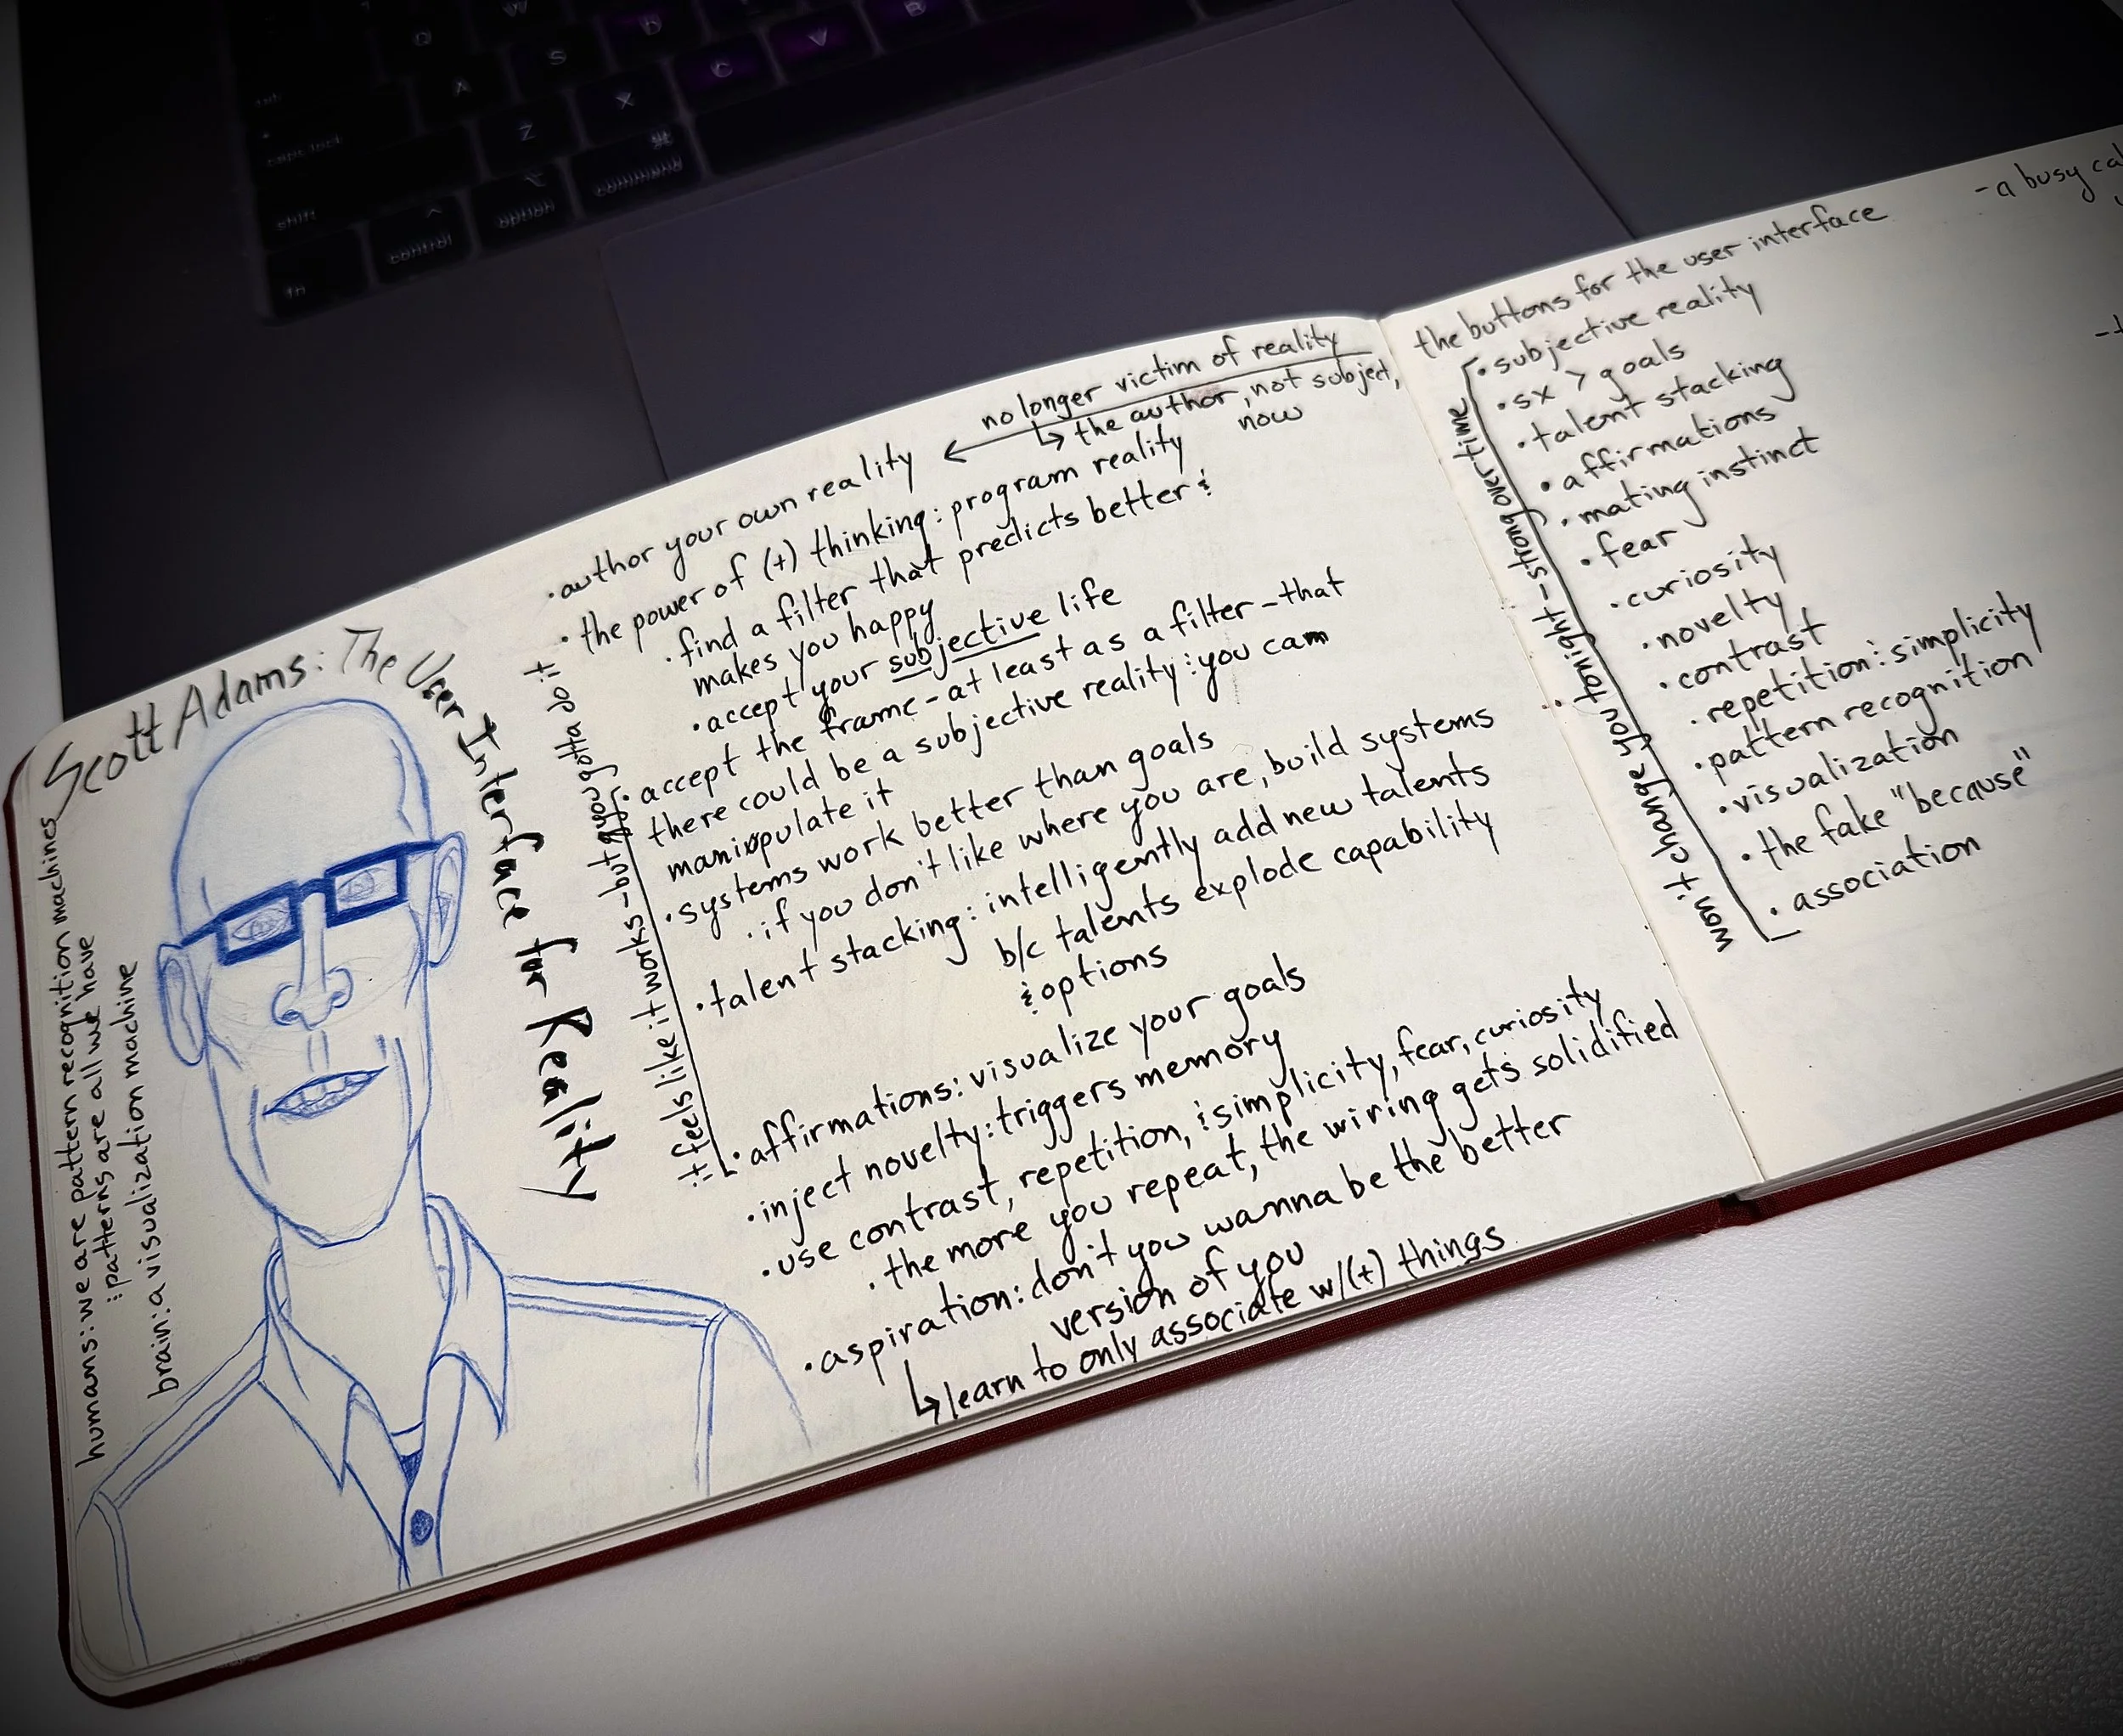 Q
W
A
S
D
Z
X
C
V
B
caps lock
shift
fn
control
option
command
Scott Adams: The User Interface for Reality
humans: we are pattern recognition machines
: patterns are all we have
brain: a visualization machine
no longer victim of reality
↳ the author, not subject,
now
• author your own reality ←
• the power of (+) thinking: program reality
• find a filter that predicts better &
makes you happy
• accept your subjective life
• accept the frame - at least as a filter - that
there could be a subjective reality: you can
manipulate it
• systems work better than goals
• if you don't like where you are, build systems
• talent stacking: intelligently add new talents
b/c talents explode capability
& options
• affirmations: visualize your goals
it feels like it works - but you gotta do it
• inject novelty: triggers memory
• use contrast, repetition, & simplicity, fear, curiosity
• the more you repeat, the wiring gets solidified
• aspiration: don't you wanna be the better
version of you
↳ learn to only associate w/(+) things
the buttons for the user interface
• subjective reality
• sx > goals
• talent stacking
• affirmations
• mating instinct
• fear
• curiosity
• novelty
• contrast
• repetition & simplicity
• pattern recognition
• visualization
• the fake "because"
• association
won't change you tonight - strong over time
- a busy